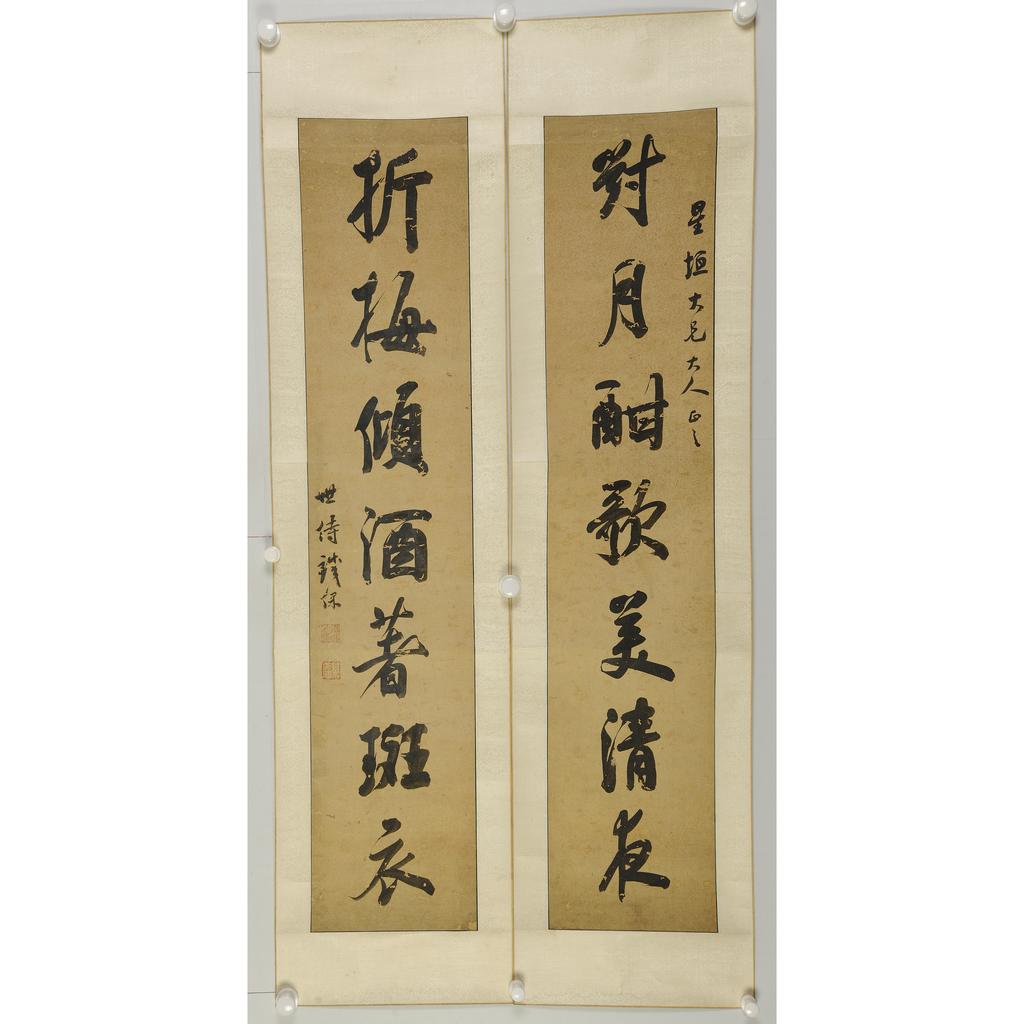 星垣大兄大人正之
對月酣歌美清夜
折梅傾酒著斑衣
世侍錢保